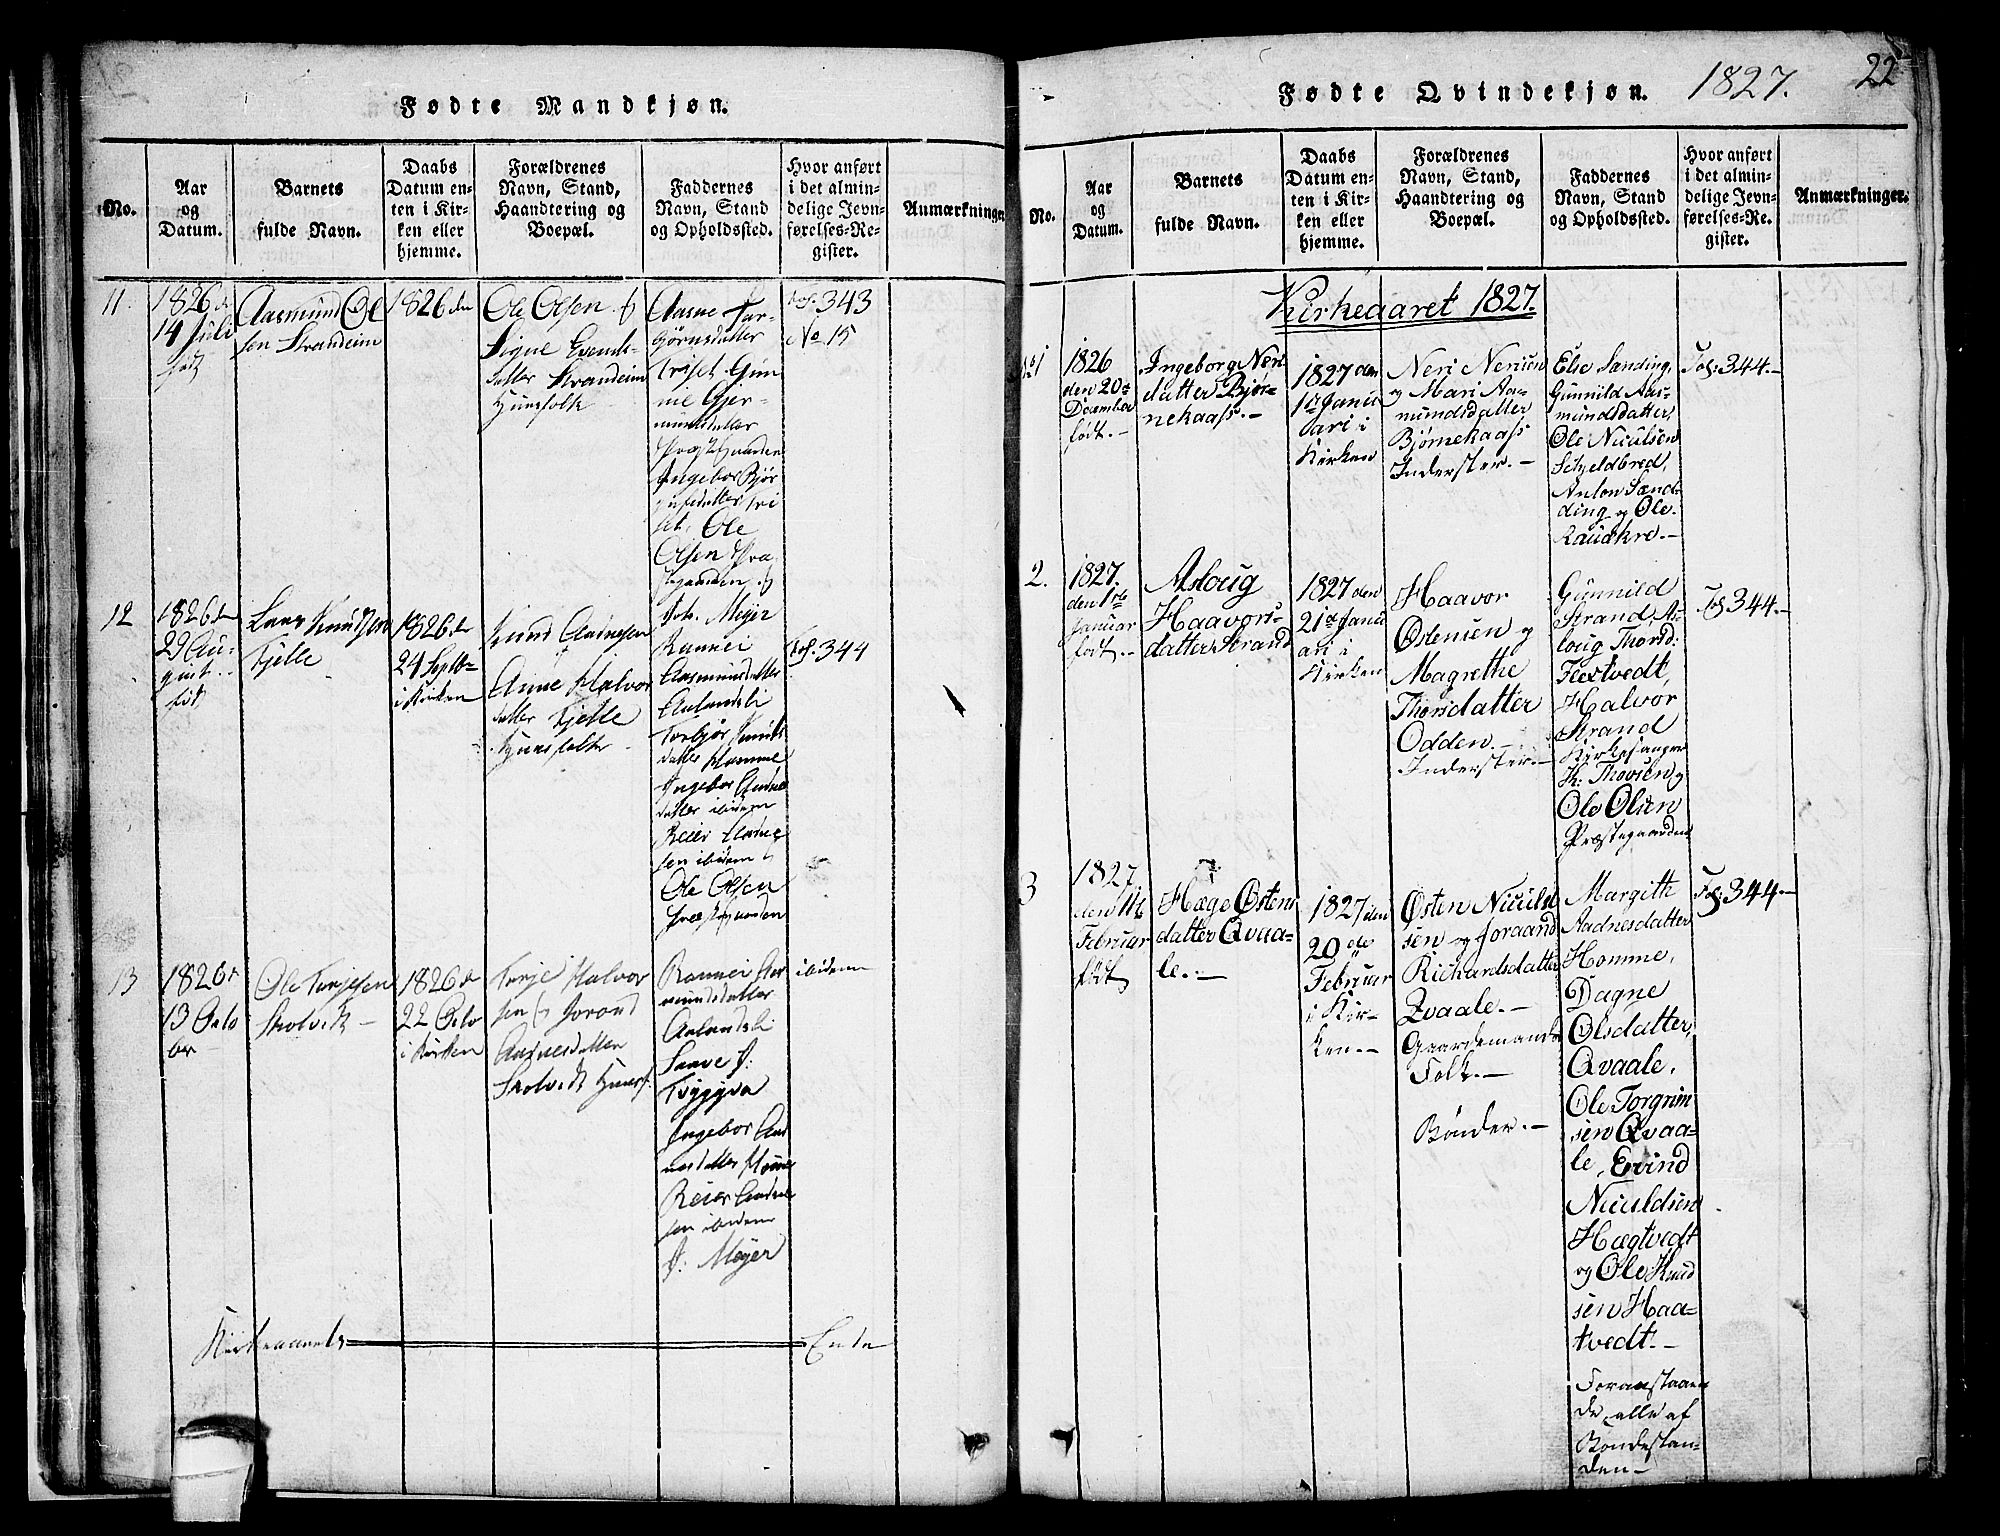 Fødte Mandkjøn.
No.
Aar
og
Datum.
Barnets
fulde Navn.
Daabs
Datum en-
ten i Kir-
ken eller
hjemme.
Forældrenes
Navn, Stand,
Haandtering og
Boepæl.
Faddernes
Navn, Stand
og Opholdssted.
Hvor anført
i det almin-
delige Jevn-
førelses-Re-
gister.
Anmærkninger
11.
1826 d.
14 Juli
født
Aasmund Ol
sen Strandeim
1826 den
Ole Olsen &
Signe Evends-
datter Strandeim
Huusfolk
Aasne Jør-
Gjørnsdatter
Triset Gun
nie Gjer-
mundsdatter
Præstegaarden
Ingebor Bjør
gufsdatter Tri
set, Ole
Olsen Præ
stegaarden &
Joh. Mejer
fol. 343
No 15
12
1826 d
29 Au-
gust
født
Lars Knudsen
Tjelle
1826 d
24 Septb
i Kirken
Knud Aadnesen
Anne Halvor
datter Tjelle
Huusfolk
Rannei
Aasmundsdatter
Aalandsli
Torbjør Knuds
datter Homme
Ingebor Aadne
datter ibidem
Reier Aadne
sen ibidem &
Ole Olsen
Præstegaarden
fol. 344
13
1826 d
13 Octo
ber
Ole Terjesen
Skolvedt
1826 d
22 Octo
i Kirken
Terje Halvor
sen & Jorond
Aadnesdatter
Skolvedt Huusf.
Rannei Aas
mundsdatter
Aalandsli
Saave J:
Tveggyva
Ingebor Aad
nesdatter Homme
Reier Aadne
sen ibidem
J: Mejer
ibidem
Kirkeaarets
Ende
Fødte Qvindekjøn.
1827.
22
No.
Aar
og
Datum.
Barnets
fulde Navn.
Daabs
Datum en-
ten i Kir-
ken eller
hjemme.
Forældrenes
Navn, Stand,
Haandtering og
Boepæl.
Faddernes
Navn, Stand
og Opholdssted.
Hvor anført
i det almin-
delige Jevn-
førelses-Re-
gister.
Anmærkninger.
Kirkeaaret 1827.
No 1
1826
den 20de
December
født.-
Ingeborg Neri
datter Bjør-
nekaass.-
1827 den
1te Janu
ari i
Kirken
Neri Nerisen
og Mari Aas-
mundsdatter
Bjørnekaass
Inderster.-
Else Sanding,
Gunnild Aas-
mundsdatter,
Ole Niculsen
Schjeldbred,
Anlon Sand-
ding og Ole
Raudkro.-
Fol: 344.-
2.
1827.
den 1te
Januar
født.-
Asloug
Haavors-
datter Strand
1827 den
21de Janu
ari i
Kirken
Haavor
Østensen og
Magrethe
Thorsdatter
Odden.-
Inderster.-
Gunnild
Strand, As-
loug Thorsd:
Fiertvedt,
Halvor
Strand
Kirkesanger
K: Thovsen og
Ole Olsen
Præstegaarden
Fol 344.-
3
1827
den 11te
Februar
født
Hæge Østens
datter Qvaa-
le.-
1827 den
20de
Februar
i Kir-
ken.-
Østen Niculd
sen og Joraand
Richardsdatter
Qvaale.-
Gaardemands
Folk.-
Bønder.-
Margith
Aadnesdatter
Homme,
Dagne
Olsdatter,
Qvaale,
Ole Torgrim
sen Qvaa-
le, Ervind
Niculdsen
Hægtvedt
og Ole Knud
sen Haa-
tvedt.-
Foranstaaen
de, alle af
Bondestan-
den-
Fol: 344.-